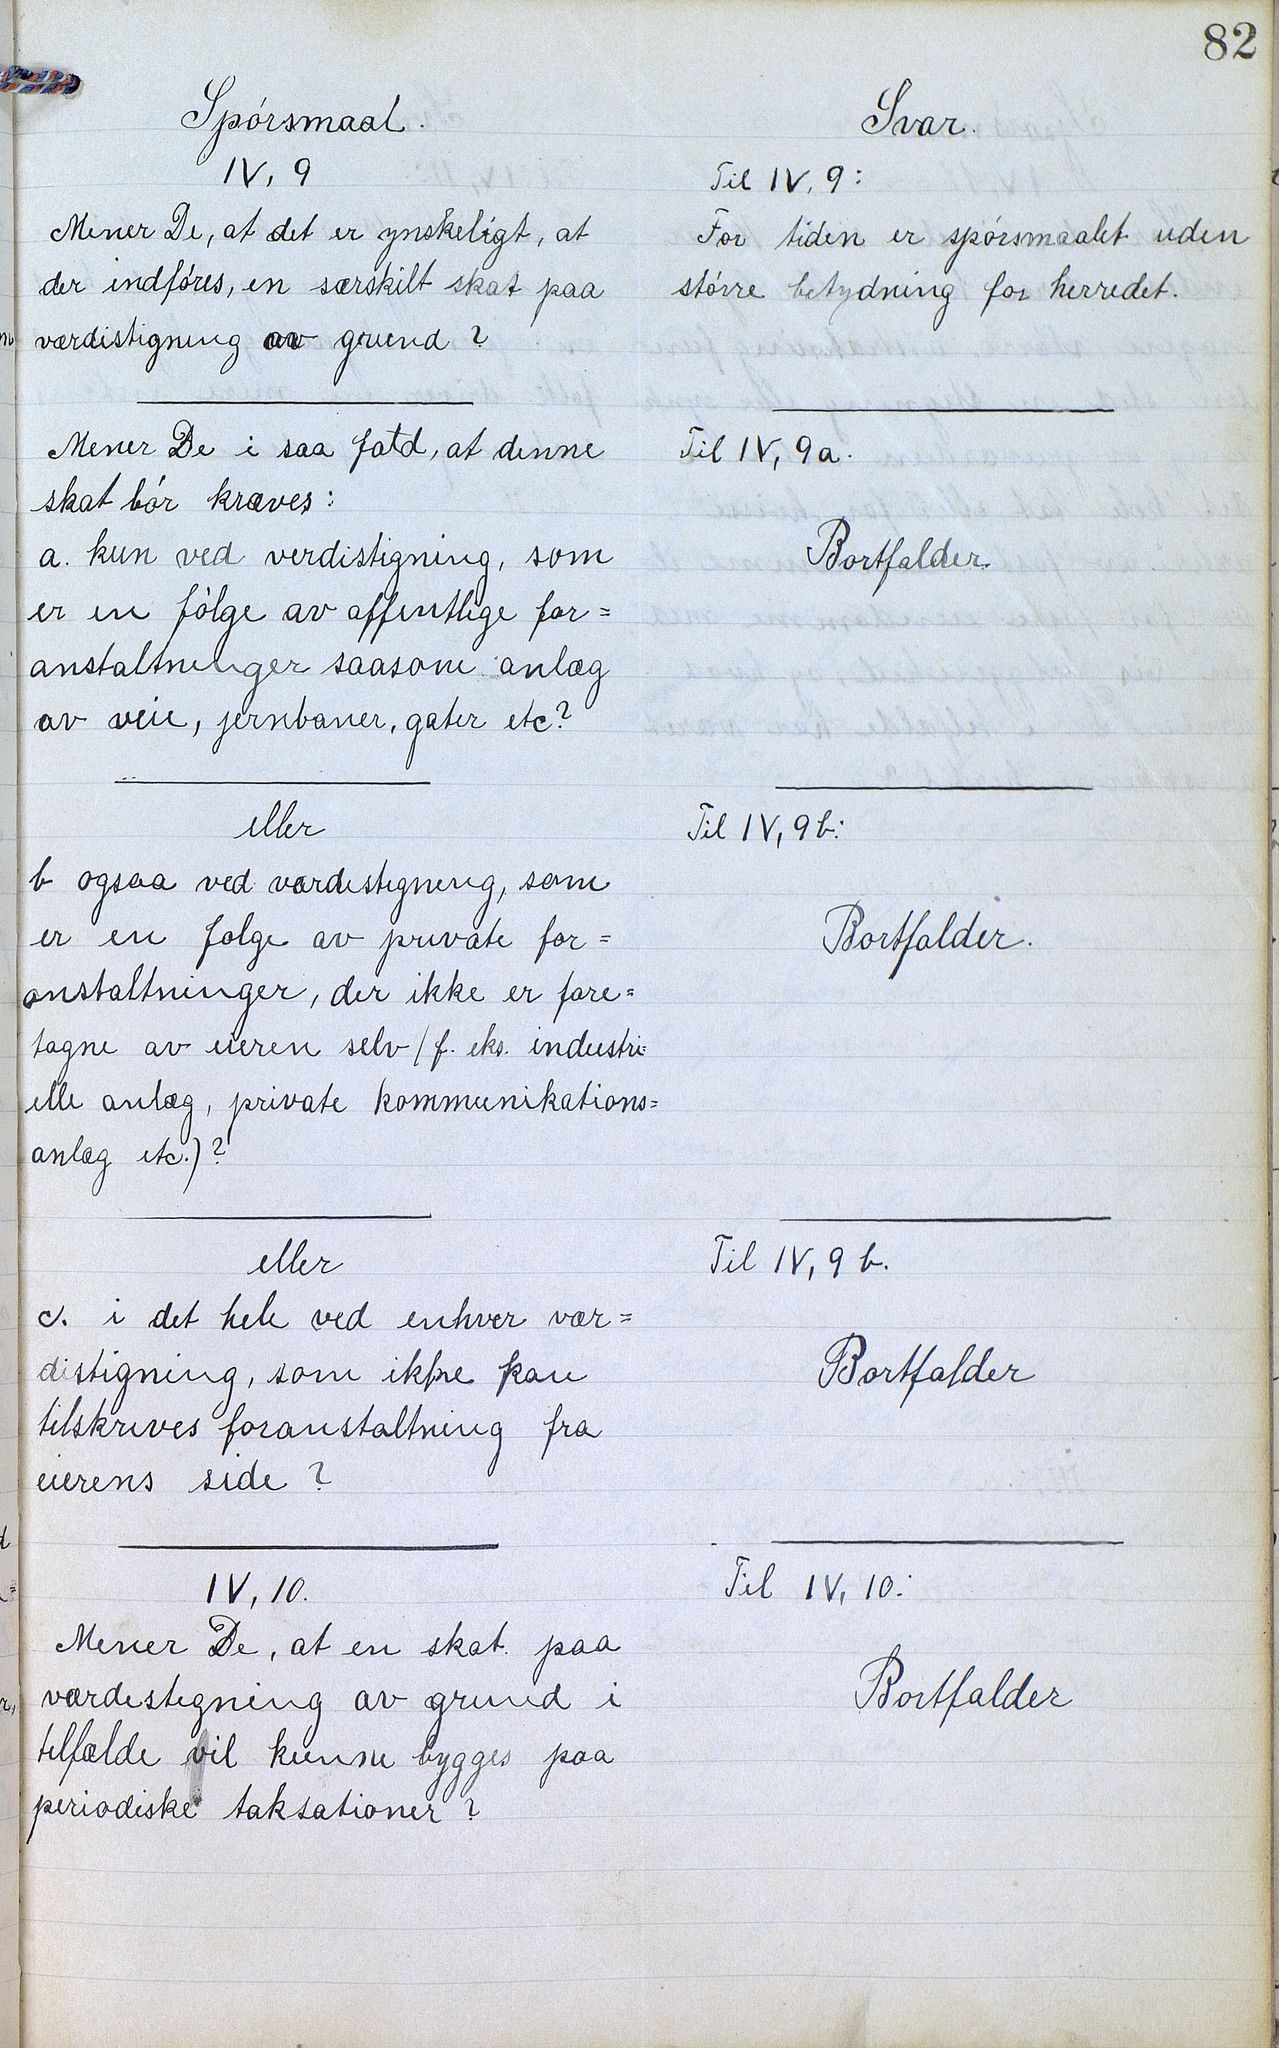 82
Spórsmaal.
IV, 9
Mener De, at det er ynskeligt, at
der indföres, en særskilt skat paa
værdistigning av grund?
Mener De i saa fald, at denne
skat bör kræves:
a. kun ved verdistigning, som
er en fölge av offentlige for=
anstaltninger saasom anlæg
av veie, jernbaner, gater etc?
eller
b ogsaa ved værdistigning, som
er en følge av private for=
anstaltninger, der ikke er fore=
tagne av eieren selv (f. eks. industri=
elle anlæg, private kommunikations=
anlæg etc.)?
eller
c. i det hele ved enhver vær=
distigning, som ikke kan
tilskrives foranstaltning fra
eierens side?
IV, 10.
Mener De, at en skat paa
værdistigning av grund i
tilfælde vil kunne bygges paa
periodiske taksationer?
Svar.
Til IV, 9:
For tiden er spórsmaalet uden
större betydning for herredet.
Til IV, 9a.
Bortfalder.
Til IV, 9b:
Bortfalder.
Til IV, 9 b.
Bortfalder
Til IV, 10:
Bortfalder